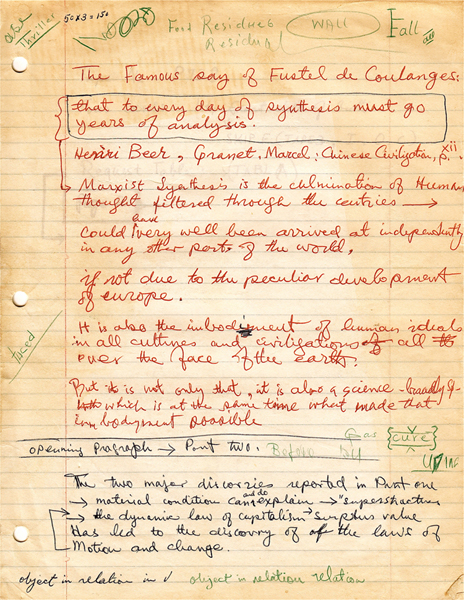 use
Thriller
50 x 3 = 150
Food Residues
Residual
WALL
Fall
The Famous say of Fustel de Coulanges:
that to every day of synthesis must go
years of analysis.
Henri Beer, Granet. Marcel: Chinese Civilization, p. xii.
Marxist Synthesis is the culmination of Human
thought filtered through the centries →
Could have very well been arrived at independently
in any other part of the world,
if not due to the peculiar development
of europe.
It is also the imbodyment of human ideals
in all cultures and civilizations of all
over the face of the earth.
But it is not only that, it is also a science - broadly
which is at the same time what made that
imbodyment possible
used
openning Paragraph → Part two.
Before
Gas
{cure}
The two major discovries reported in Part one
→ material condition can and do explain → "superstructures
→ the dynamic law of capitalism → surplus value
Has led to the discovry of the laws of
Motion and change.
object in relation in
object in relation relation